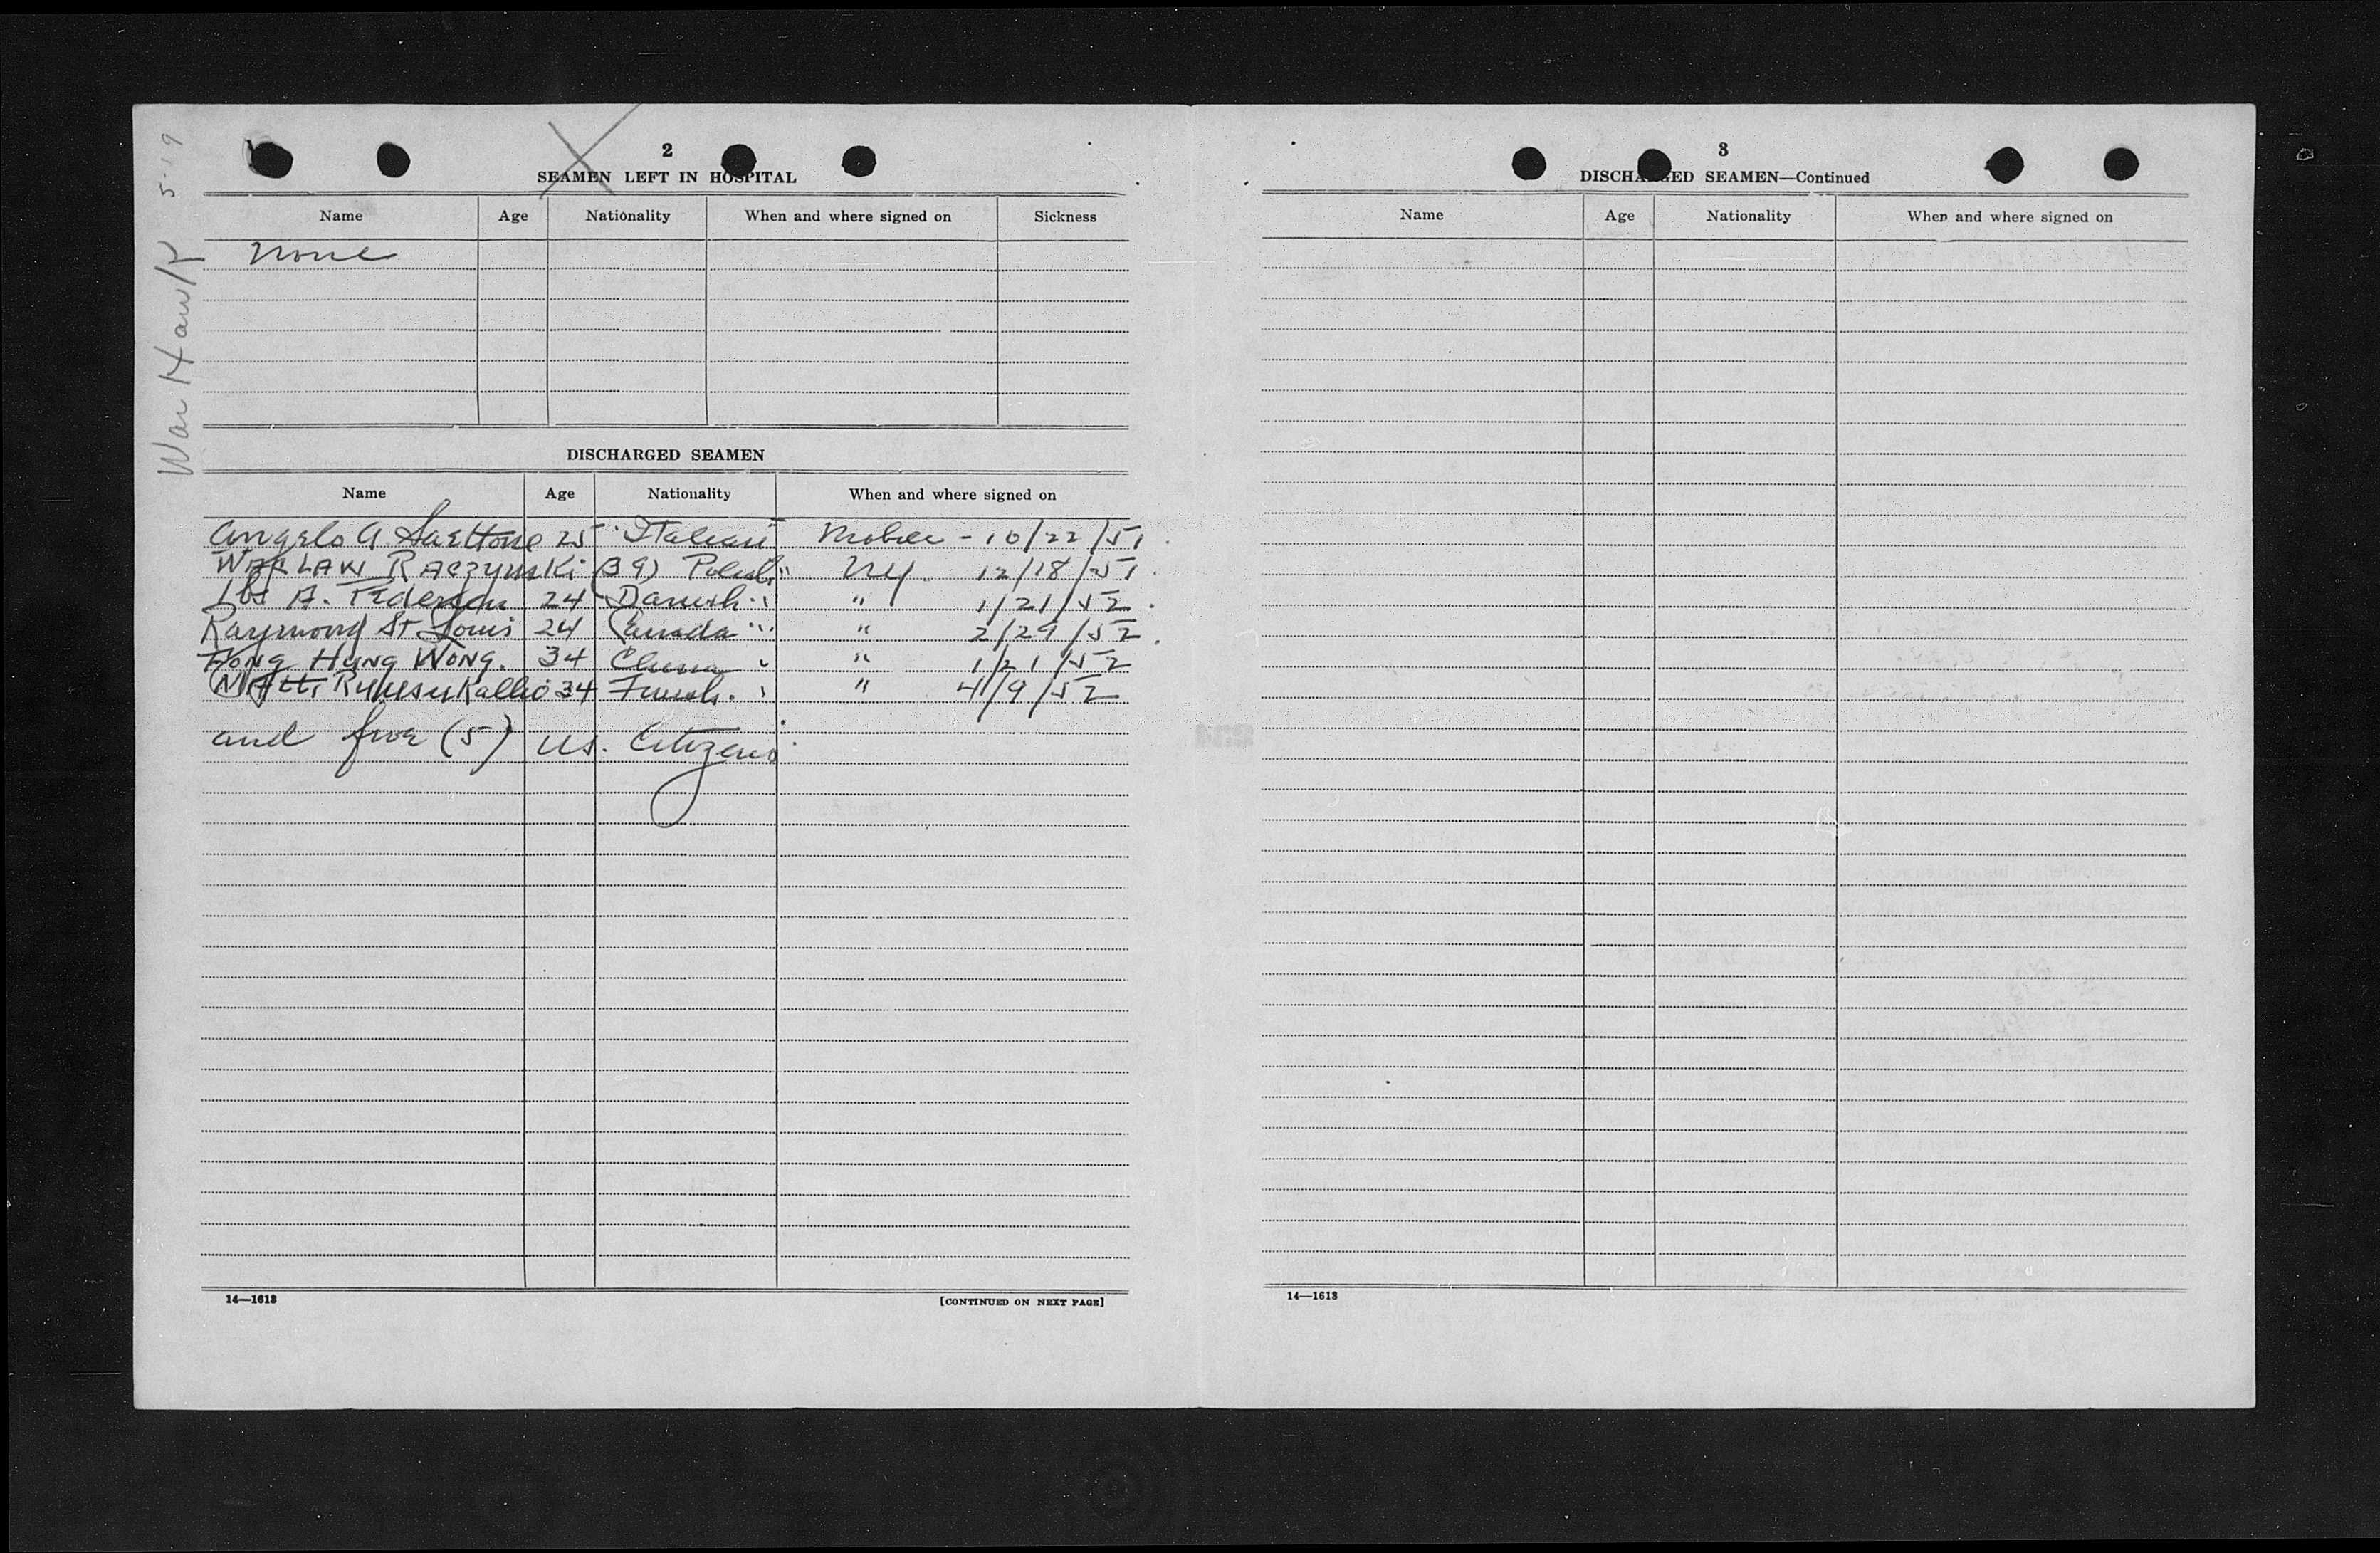 War Hawk 5-19
2
SEAMEN LEFT IN HOSPITAL
Name Age Nationality When and where signed on Sickness
None
DISCHARGED SEAMEN
Name Age Nationality When and where signed on
Angelo A 25 Italian Mobile - 10/22/51
WACLAW RACZYNSKi (39) Polish " NY. 12/18/51
A. Pedersen 24 Danish " " 1/21/52
Raymond St Louis 24 Canada " " 2/29/52
HONG HUNG WONG. 34 China " " 1/21/52
Matti 34 Finish. " " 4/9/52
and five (5) US. Citizens
14—1613 [CONTINUED ON NEXT PAGE]
3
DISCHARGED SEAMEN—Continued
Name Age Nationality When and where signed on
14—1613